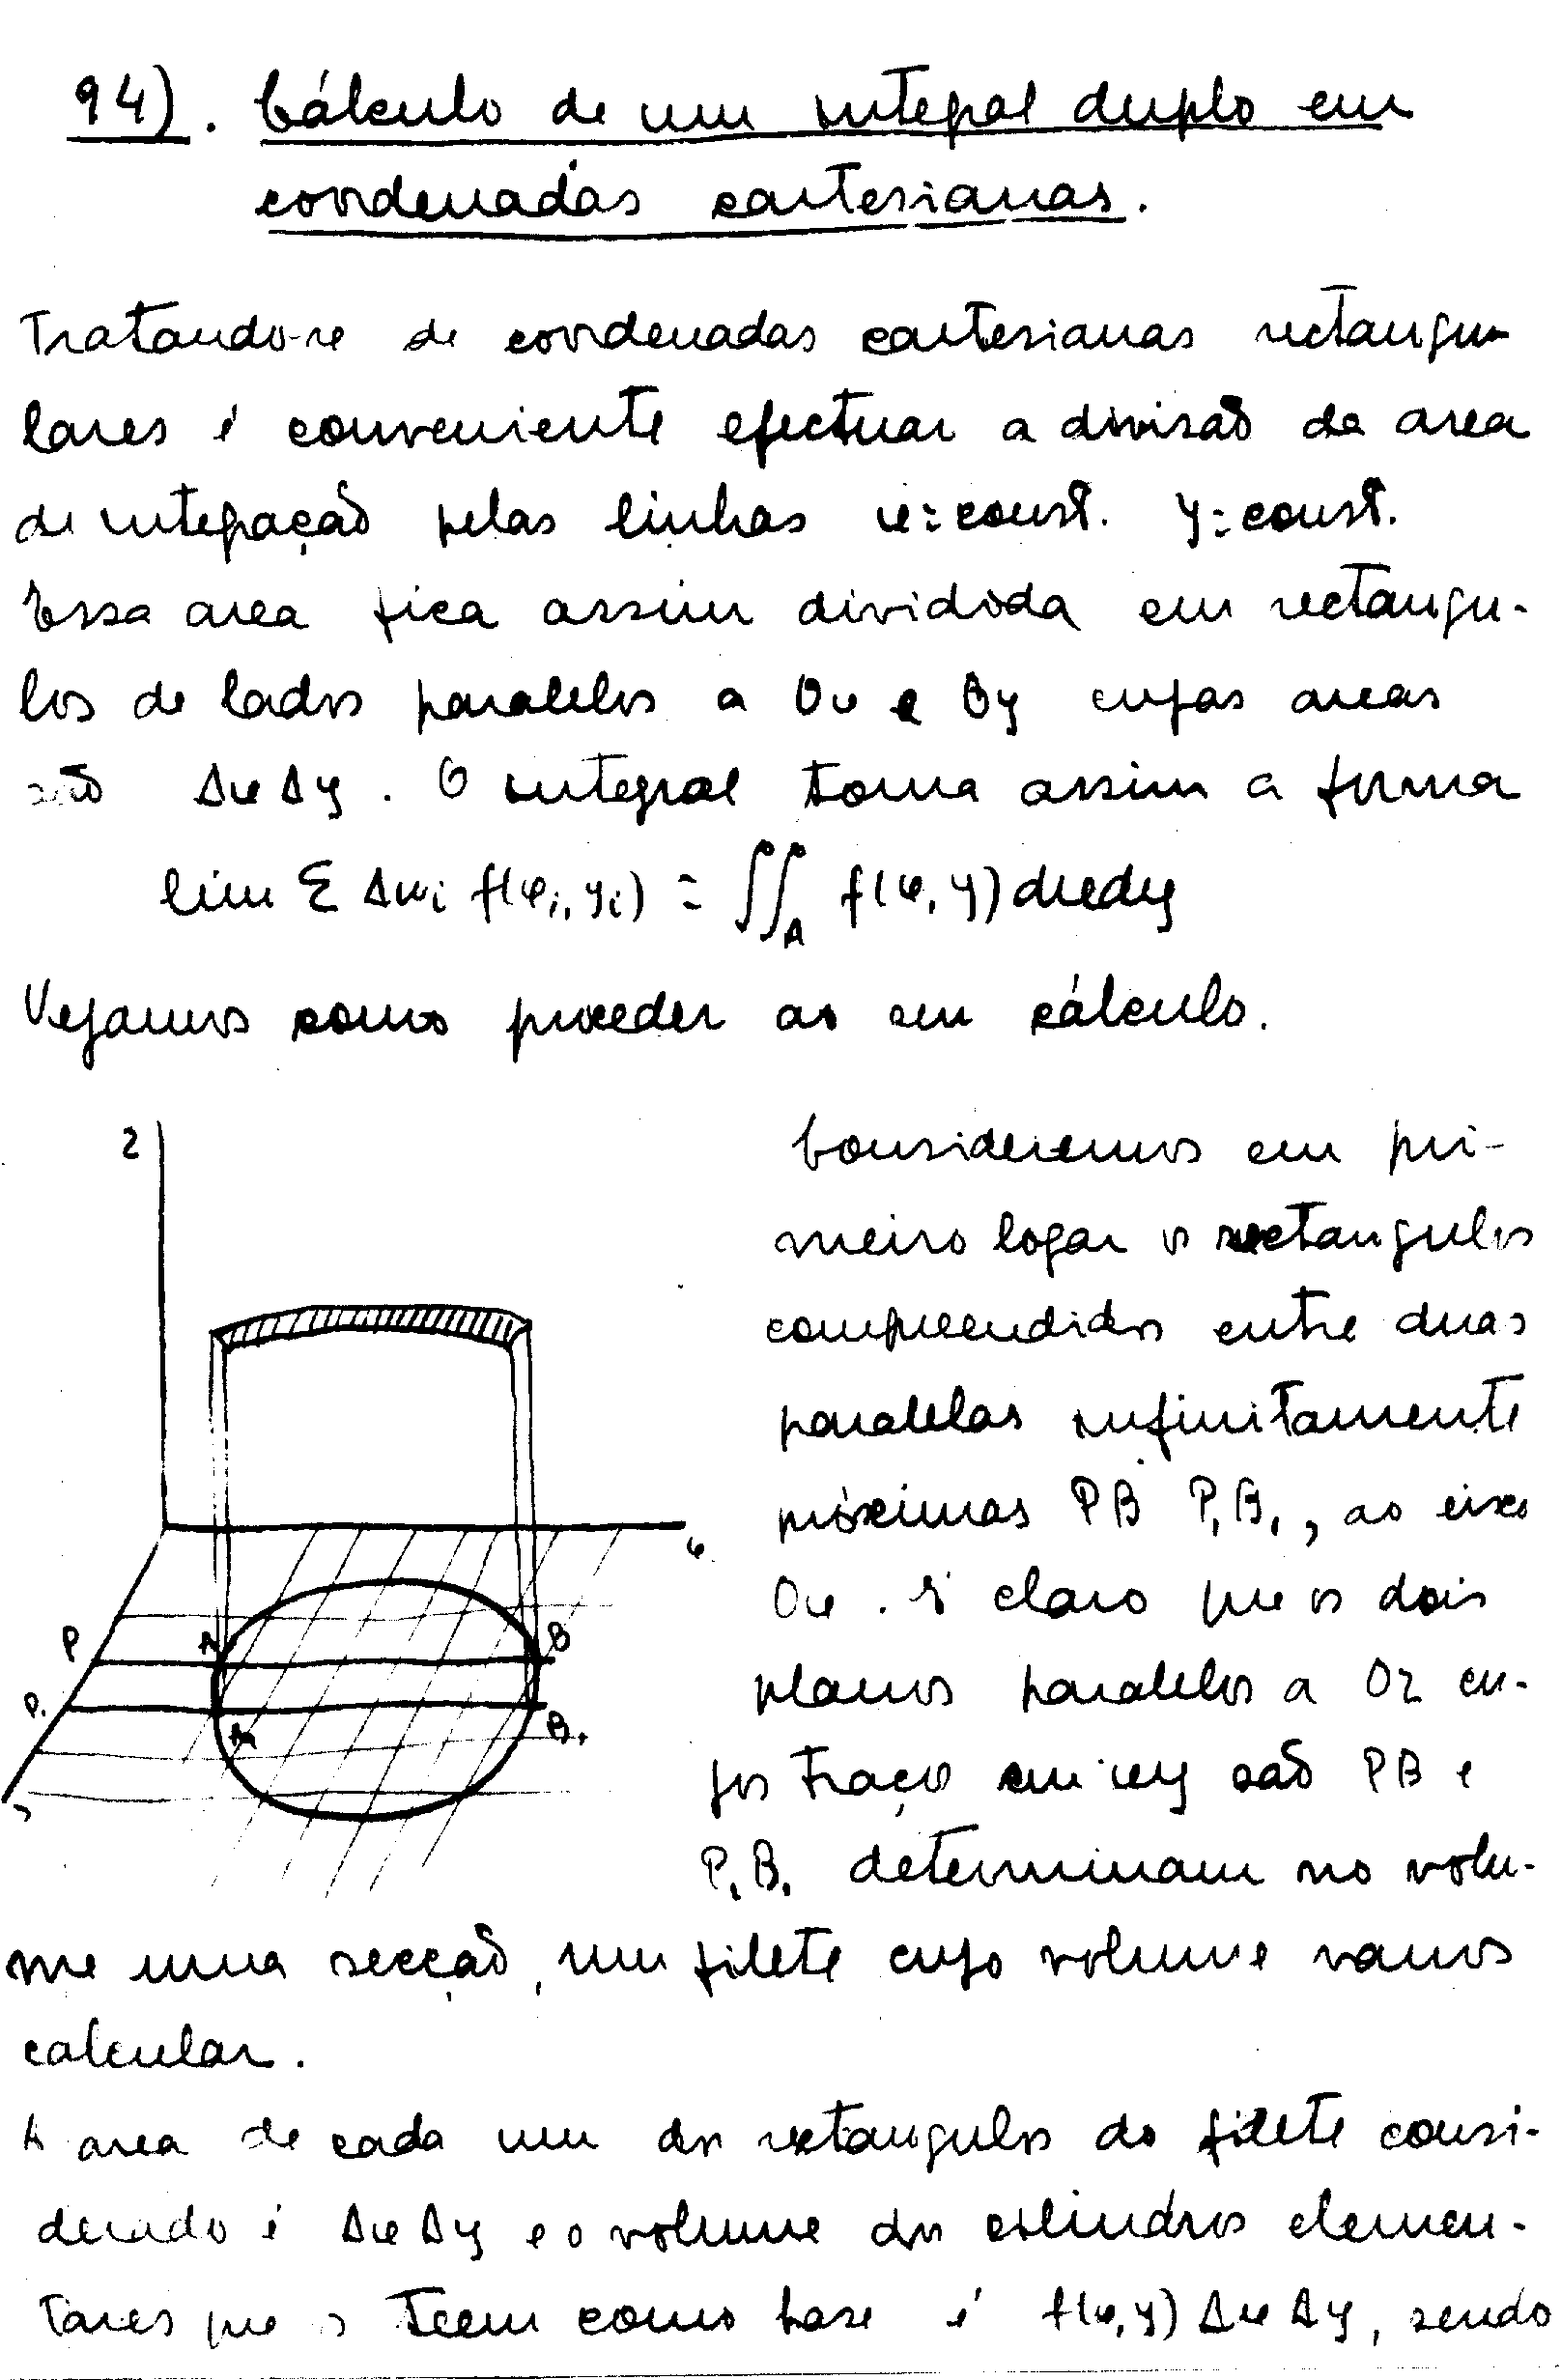 94). Cálculo de um integral duplo em
coordenadas cartesianas.
Tratando-se de coordenadas cartesianas rectangu-
lares é conveniente efectuar a divisão da area
de integração pelas linhas x=const. y=const.
Essa area fica assim dividida em rectangu-
los de lados paralelos a Ox e Oy cujas areas
são Δx Δy. O integral toma assim a forma
lim Σ Δωi f(xi, yi) = ∬A f(x, y) dxdy
Vejamos como proceder ao seu cálculo.
z
x
P A B
P1 A1 B1
y
Consideremos em pri-
meiro logar os rectangulos
compreendidos entre duas
paralelas infinitamente
próximas PB P1B1, ao eixo
Ox. É claro que os dois
planos paralelos a Oz cu-
jos traços em xy são PB e
P1B1 determinam no volu-
me uma secção, um filete cujo volume vamos
calcular.
A area de cada um dos rectangulos do filete consi-
derado é Δx Δy e o volume dos cilindros elemen-
tares que os teem como base é f(x,y) Δx Δy, sendo